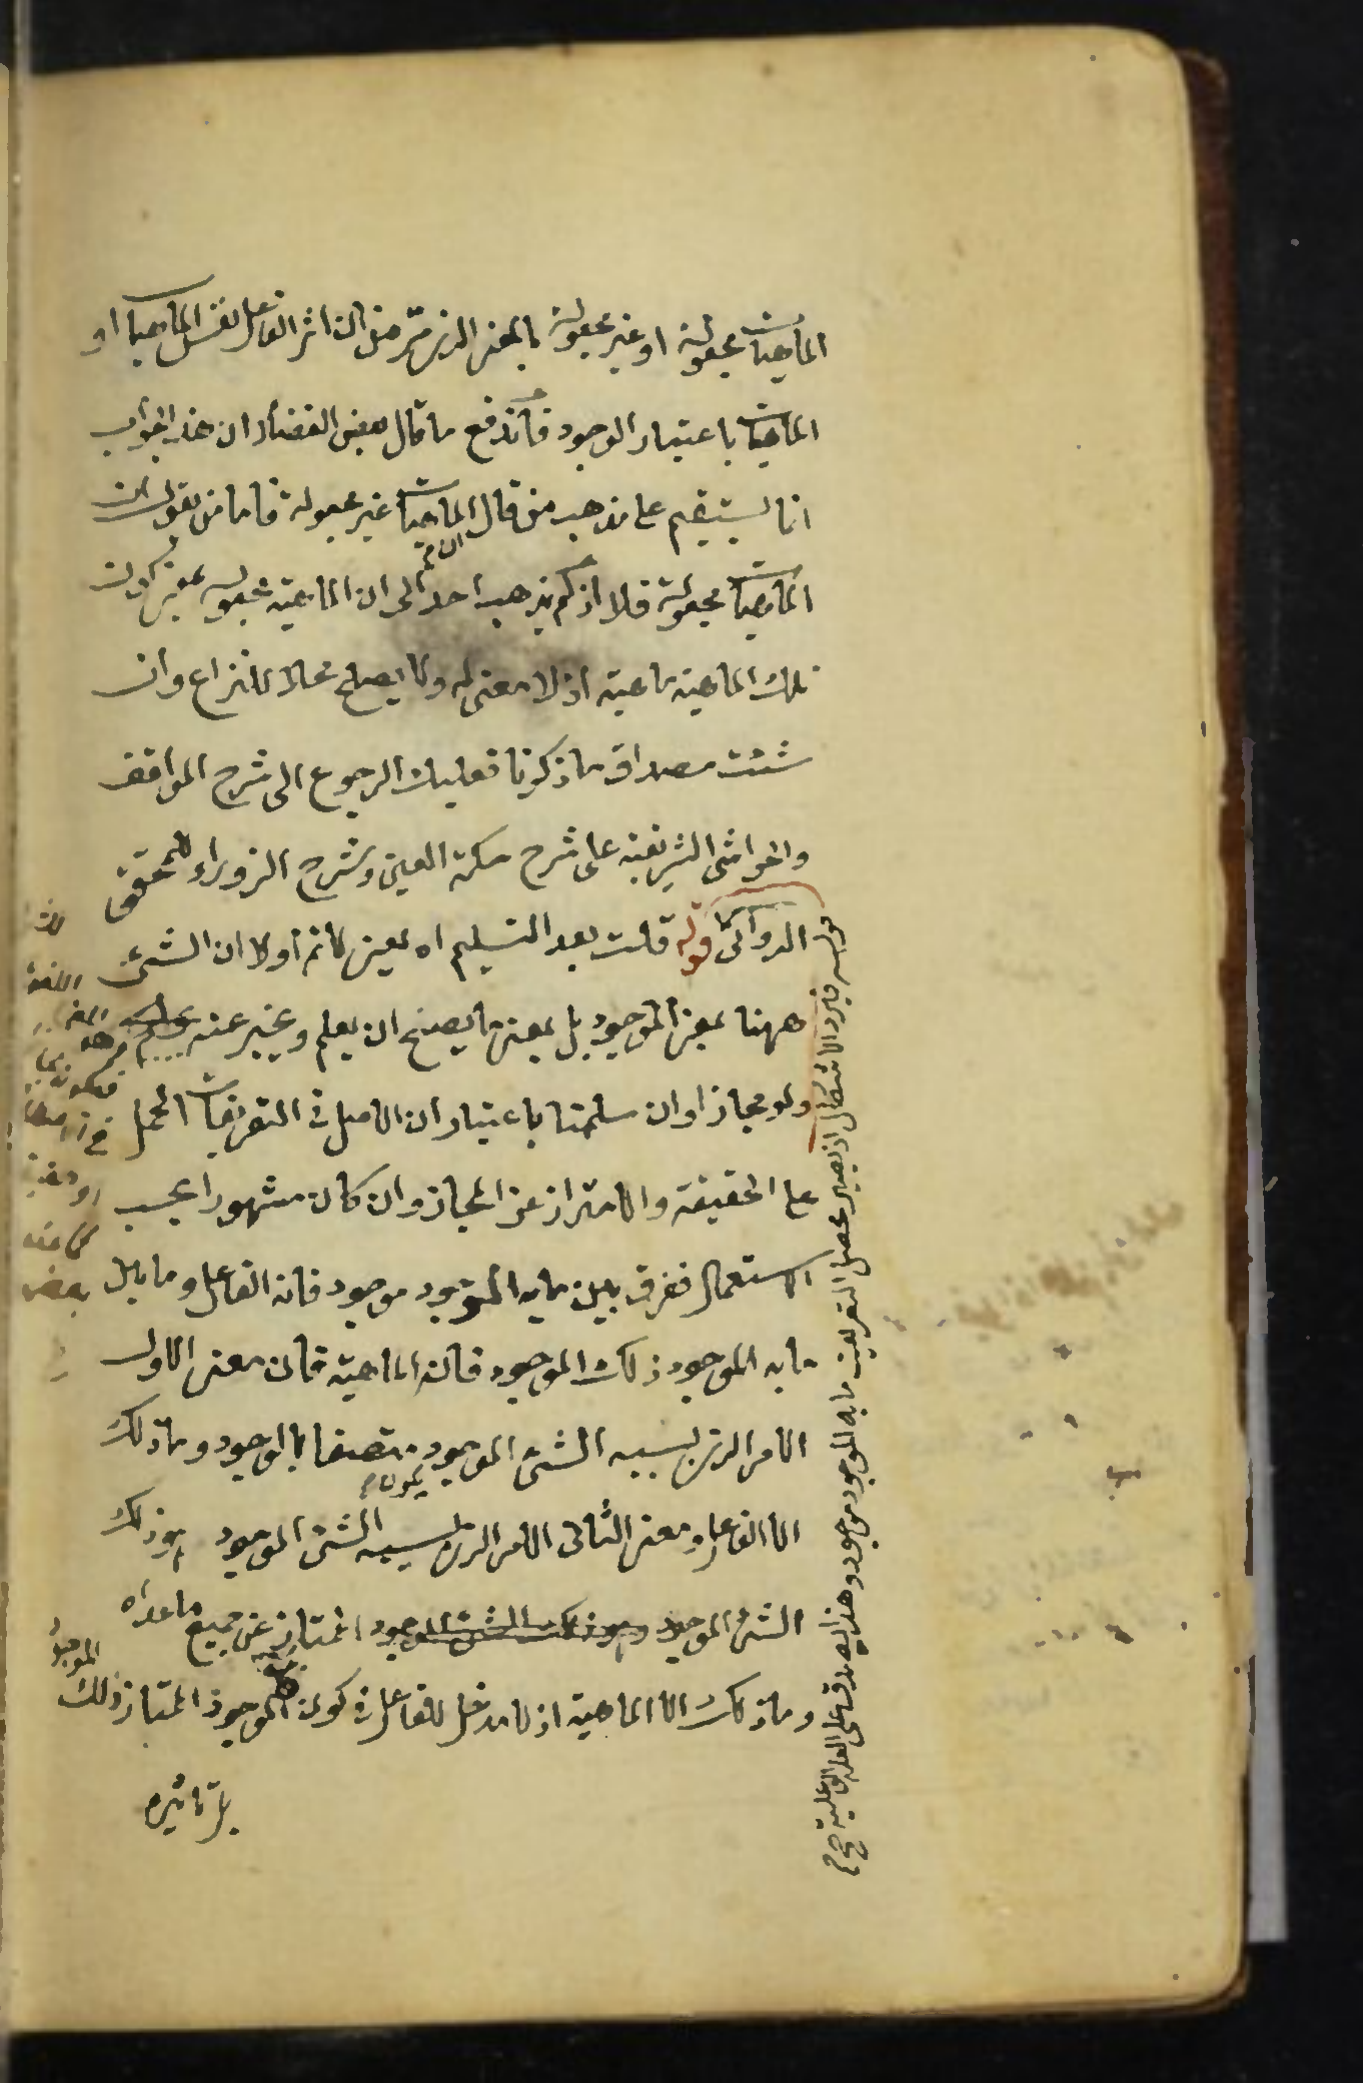 الماهيات مجعولة او غير مجعولة بالمعنى الذى مرّ من ان اثر الفاعل نفس الماهيات او
الماهيات باعتبار الوجود فاندفع ما قال بعض الفضلاء ان هذا الجواب
انما يستقيم على مذهب من قال الماهيات غير مجعولة فاما من يقول ان
الماهيات مجعولة فلا اذ لم يذهب احد الى ان الماهية مجعولة بمعنى كون
تلك الماهية ماهية اذ لا معنى له ولا يصلح محلا للنزاع وان
شئت مصداق ما ذكرنا فعليك الرجوع الى شرح المواقف
والحواشى الشريفية على شرح حكمة العين وشرح الزوراء للمحقق
الدوانى قوله قلت بعد التسليم اه يعنى لا نم اولا ان الشئ
ههنا بمعنى الموجود بل بمعنى ما يصح ان يعلم ويخبر عنه
ولو مجازا وان سلمنا باعتبار ان الاصل فى التعريفات الحمل
على الحقيقة والاحتراز عن المجاز وان كان مشهورا بحسب
الاستعمال ففرق بين ما به الموجود موجود فانه الفاعل وما بل
ما به الموجود ذلك الموجود فانه الماهية فان معنى الاول
الامر الذى بسببه الشئ الموجود متصفا بالوجود وما ذلك
الا الفاعل ومعنى الثانى الامر الذى بسببه الشئ الموجود هو ذلك
الشئ الموجود وهو ذلك الشئ الموجود الممتاز عن جميع ما عداه
وما ذلك الا الماهية اذ لا مدخل للفاعل فى كون الموجود الممتاز ذلك الموجود
بل تاثيره
قوله فيرد الاشكال اذ يصير محصل التعريف ما به الموجود موجود وهذا يصدق على العلة الفاعلية صح م